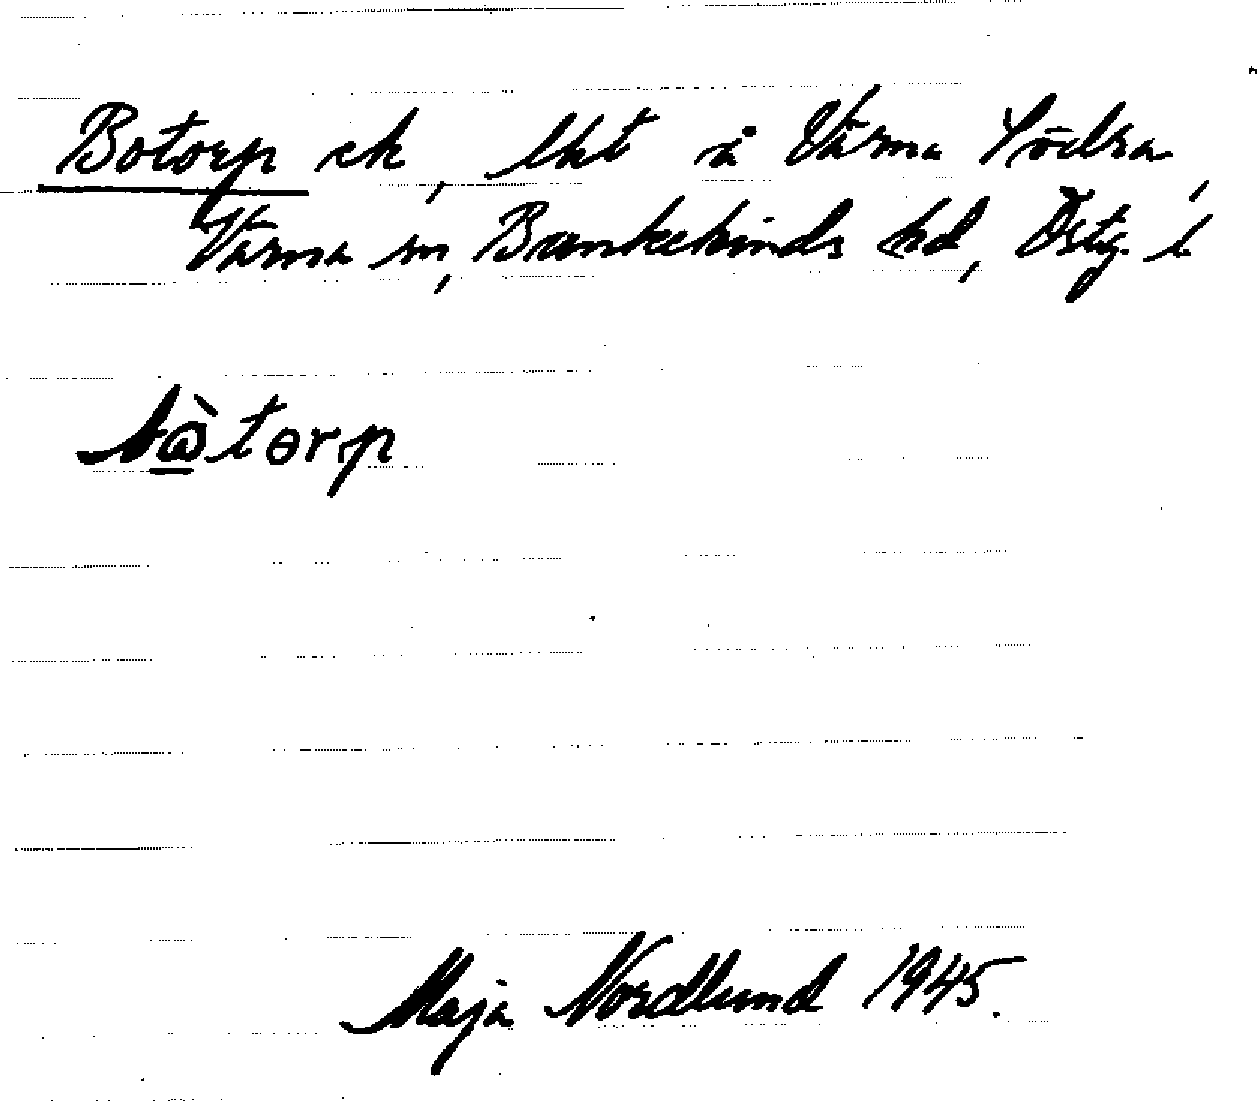 Botorp ek, lht å Vårna Södra,
Vårna sn, Bankekinds hd, Östg. l
bὰtɵrp
Maja Nordlund 1945.